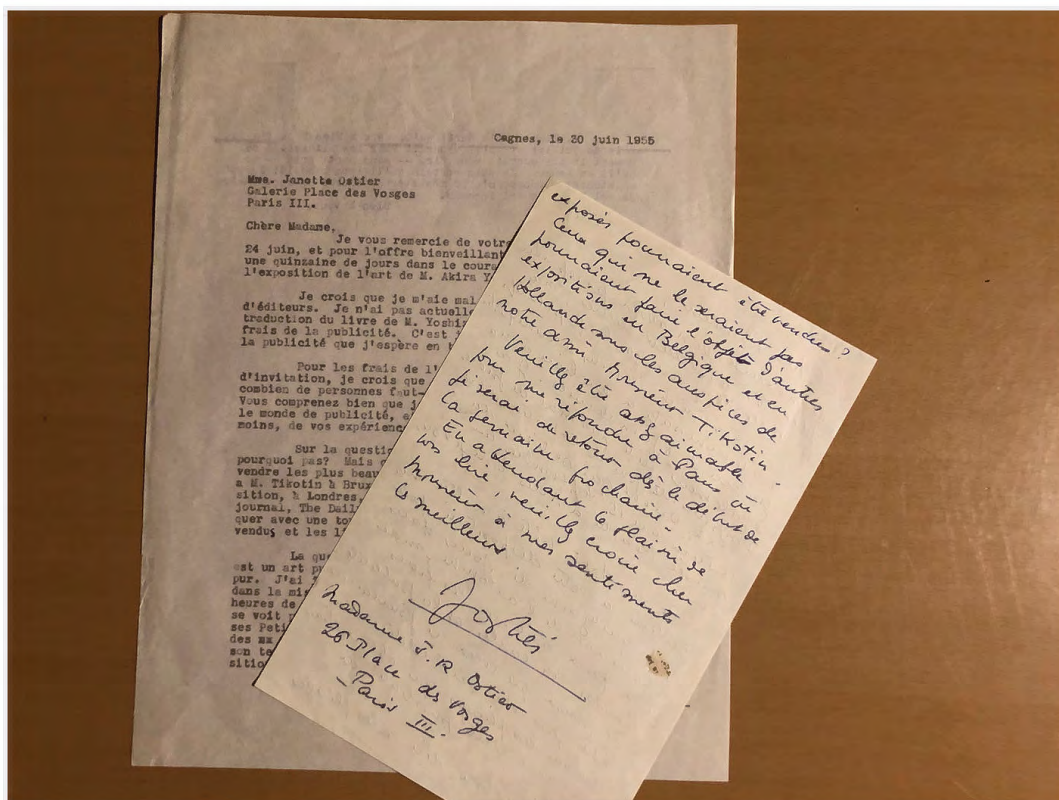 Cagnes, le 30 juin 1955
Mme. Janette Ostier
Galerie Place des Vosges
Paris III.
Chère Madame,
Je vous remercie de votre
24 juin, et pour l'offre bienveillant
une quinzaine de jours dans le coura
l'exposition de l'art de M. Akira Y
Je crois que je m'aie mal
d'éditeurs. Je n'ai pas actuelle
traduction du livre de M. Yoshi
frais de la publicité. C'est
la publicité que j'espère en
Pour les frais de l'
d'invitation, je crois que
combien de personnes faut-
Vous comprenez bien que j
le monde de publicité, a
moins, de vos expérienc
Sur la questi
pourquoi pas? Mais
vendre les plus beau
a M. Tikotin à Brux
sition, à Londres,
journal, The Dail
quer avec une to
vendus et les l
La qu
est un art p
pur. J'ai
dans la mi
heures de
se voit
ses Peti
des mx
son te
sitio
exposés pourraient être vendus ?
Ceux qui ne le seraient pas
pourraient faire l'objet d'autres
expositions en Belgique et en
Hollande sous les auspices de
notre ami Monsieur Tikotin
Veuillez être assez aimable
pour me répondre à Paris où
je serai de retour dès le début de
la semaine prochaine.
En attendant le plaisir de
vos lire, veuillez croire cher
Monsieur à mes sentiments
les meilleurs
Madame J. R Ostier
26 Place des Vosges
Paris III.